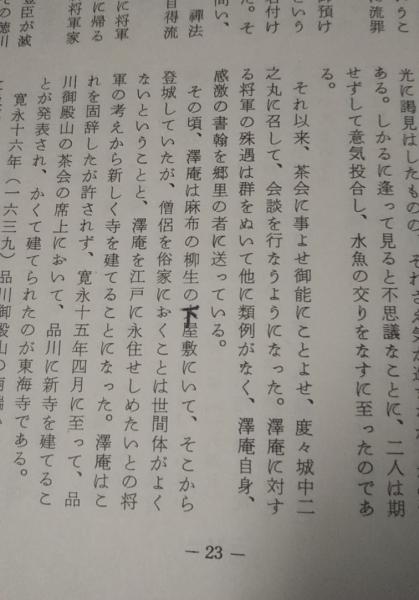 うこ
に流罪
御預け
という
名付け
た。そ
問い、
禪法
自得流
に将軍
に帰る
将軍家
豊臣が滅
の徳川
光に謁見はしたものの、それ
ある。しかるに逢って見ると不思議なことに、二人は期
せずして意気投合し、水魚の交りをなすに至ったのであ
る。
それ以来、茶会に事よせ御能にことよせ、度々城中二
之丸に召して、会談を行なうようになった。澤庵に対す
る将軍の殊遇は群をぬいて他に類例がなく、澤庵自身、
感激の書翰を郷里の者に送っている。
その頃、澤庵は麻布の柳生の下屋敷にいて、そこから
登城していたが、僧侶を俗家におくことは世間体がよく
ないということと、澤庵を江戸に永住せしめたいとの将
軍の考えから新しく寺を建てることになった。澤庵はこ
れを固辞したが許されず、寛永十五年四月に至って、品
川御殿山の茶会の席上において、品川に新寺を建てるこ
とが発表され、かくて建てられたのが東海寺である。
寛永十六年（一六三九）品川御殿山の南端
— 23 —